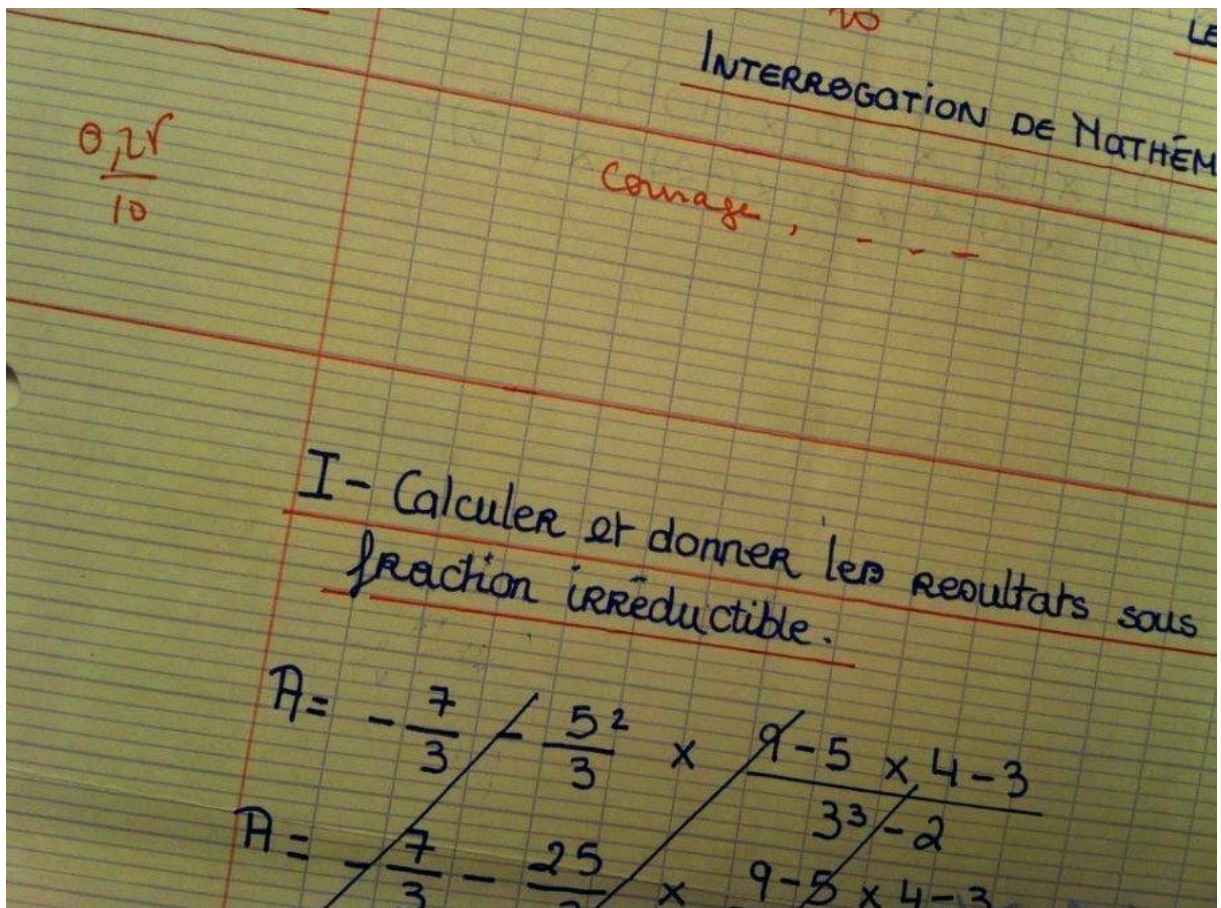 20
LE
INTERROGATION DE MATHÉM
0,25
10
Courage, - - -
I- Calculer et donner les resultats sous
fraction irréductible.
A = - 7/3 - 5²/3 × (9-5 × 4-3)/(3³-2)
A = - 7/3 - 25 × 9-5 × 4-3